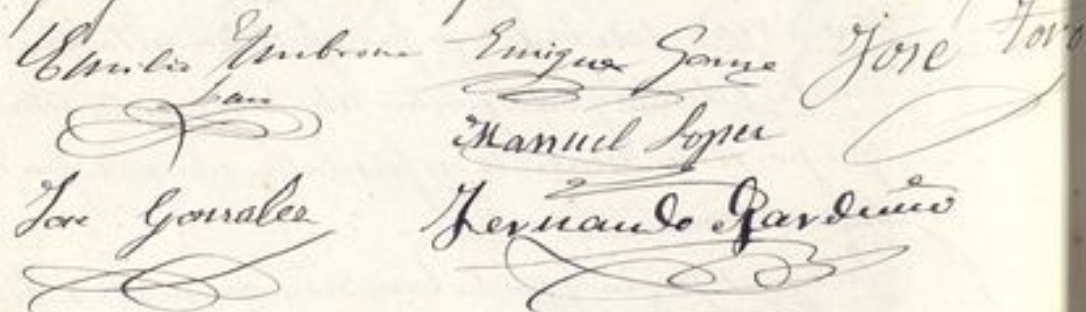 Emilio Ambrona Enrique Gome Jose Toro
San
Manuel Lopez
Jose Gonzalez Fernando Garduño